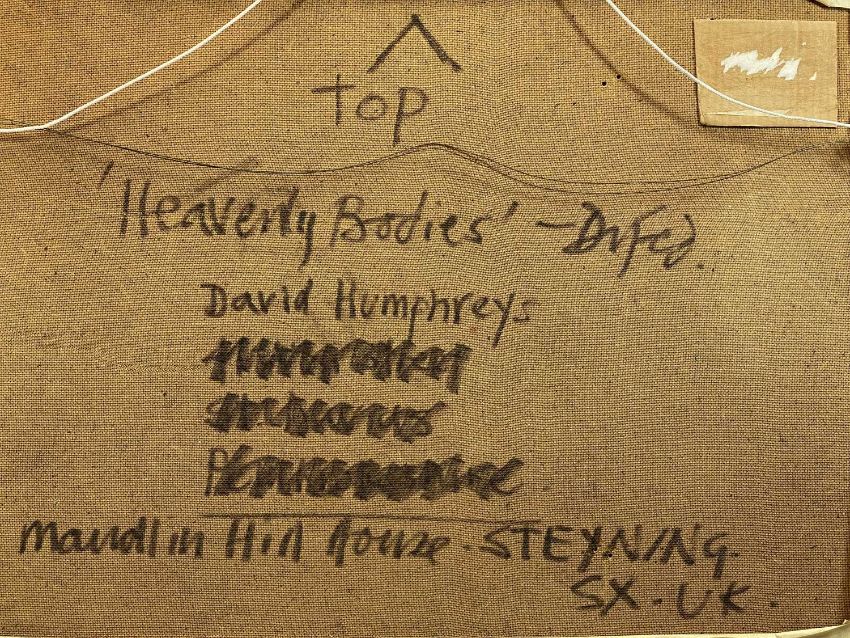 top
'Heavenly Bodies' - Dyfed.
David Humphreys
Maudlin Hill House. STEYNING.
SX. UK.